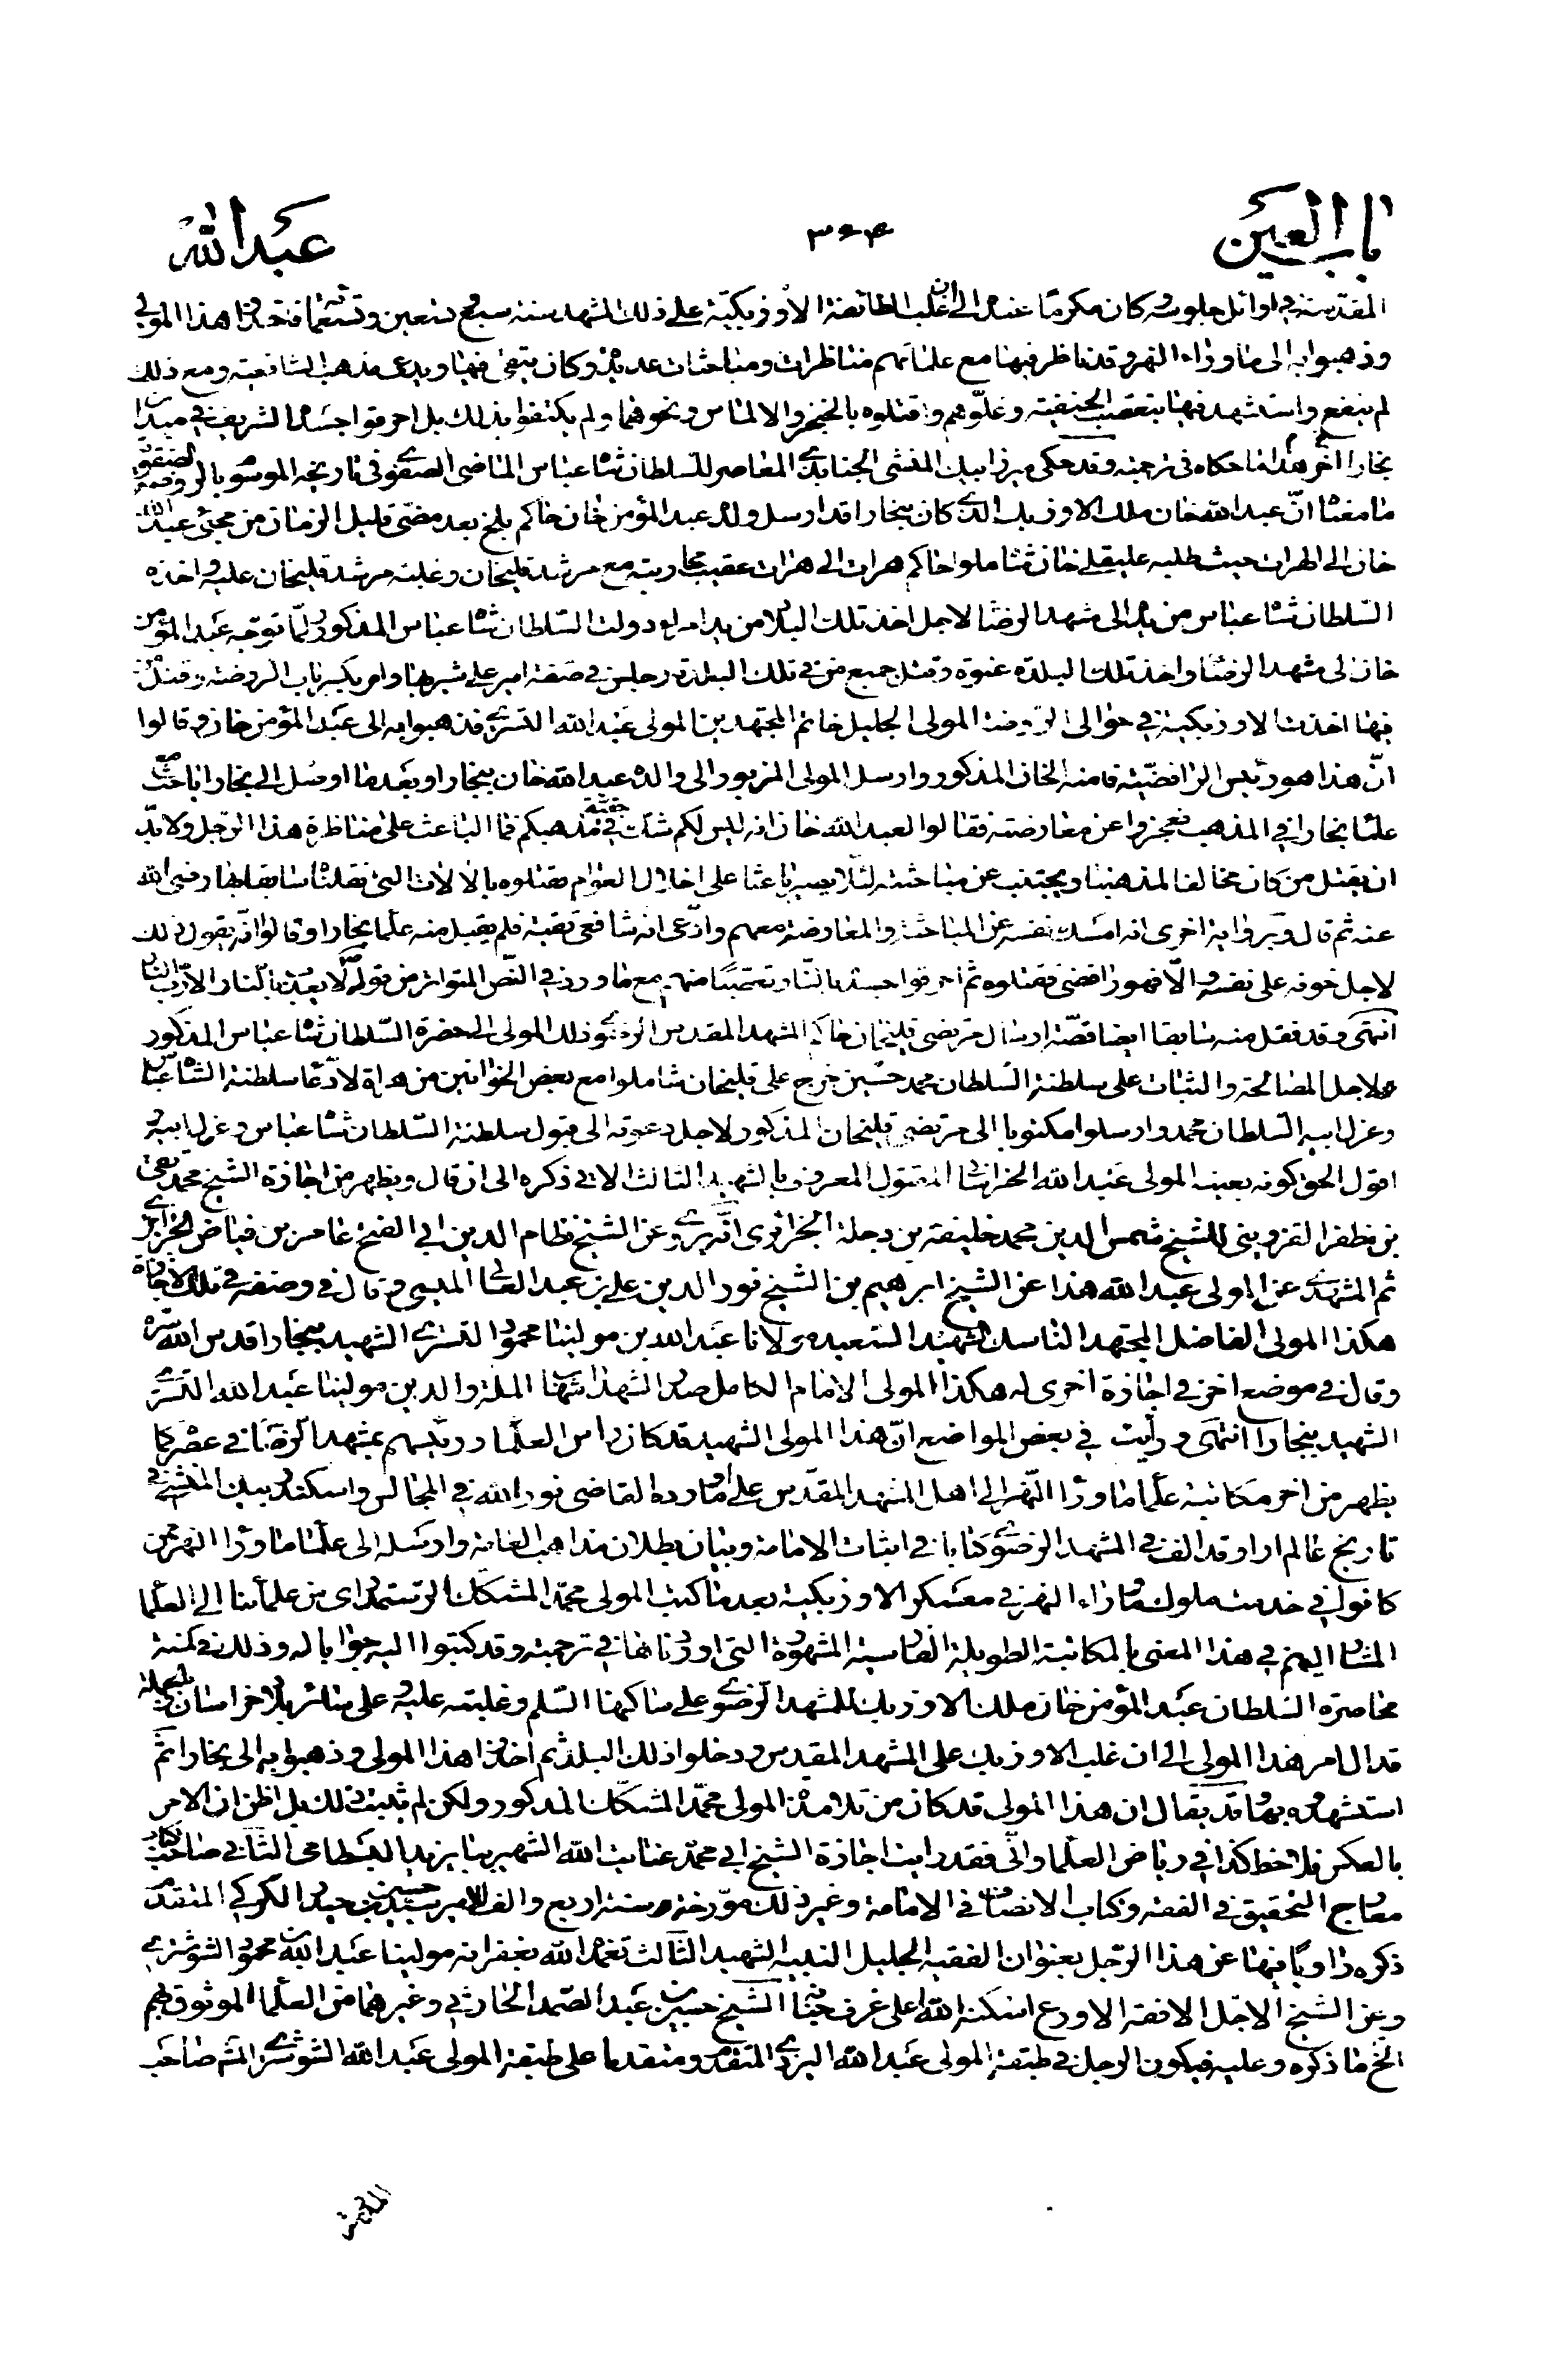 باب العين ٣٦٤ عبدالله
المقدسة في اوائل جلوسه و كان مكرما عنده الى ان غلب الطائفة الاوزبكية على ذلك المشهد سنة سبع و تسعين و تسعمائة فاخذوا هذا المولى
وذهبوا به الى ماوراء النهر و قد ناظر فيها مع علمائهم مناظرات ومباحثات عديدة و كان يتقى فيها ويدعى مذهب الشافعية ومع ذلك
لم ينفع واستشهد فيها بتعصب الحنفية وغلوهم و اقتلوه بالخنجر والالماس ونحوهما ولم يكتفوا بذلك بل احرقوا جسده الشريف في ميدان
بخارا اخر هذا ما حكاه في ترجمته وقد حكى ميرزا بيك المنشى الجنابدى المعاصر للسلطان شاه عباس الماضى الصفوى في تاريخه الموسوم بالروضة الصفوية
ما معناه انّ عبد الله خان ملك الاوزبك الذى كان ببخارا قد ارسل ولده عبد المؤمن خان حاكم بلخ بعد مضى قليل الزمان من مجئ عبد الله
خان الى الهرات حيث طلبه عليقلى خان شاملو حاكم هرات الى هرات عقيب محاربته مع مرشد قليخان وغلبة مرشد قليخان عليه و اخذه
السلطان شاه عباس من يده الى مشهد الرضا لاجل اخذ تلك البلاد من يد امراء دولت السلطان شاه عباس المذكور و لمّا توجّه عبد المؤمن
خان الى مشهد الرضا و اخذ تلك البلدة عنوة و قتل جميع من في تلك البلدة و جلس في صفة امير على شيرها و امر بكسر باب الروضة و قتل من
فيها اخذت الاوزبكية في حوالى الروضة المولى الجليل خاتم المجتهدين المولى عبد الله التسترى فذهبوا به الى عبد المؤمن خان و قالوا
انّ هذا هو رئيس الرافضيّة فامنه الخان المذكور و ارسل المولى المزبور الى والده عبد الله خان ببخارا و بعد ما اوصل الى بخارا باحث مع
علماء بخارا في المذهب فعجزوا عن معارضته فقالوا لعبد الله خان انه ليس لكم شك في حقية مذهبكم فما الباعث على مناظرة هذا الرجل ولابدّ
ان يقتل من كان مخالفا لمذهبنا ويجتنب عن مباحثته لئلا يصير باعثا على اخلال العوام فقتلوه بالالات التى نقلناه سابقا بها رضى الله
عنه ثم قال وبرواية اخرى انه امسك نفسه عن المباحثة والمعارضة معهم وادّعى انه شافعى تقية فلم يقبل منه علماء بخارا وقالوا انّه يقول ذلك
لاجل خوفه على نفسه و الّا فهو رافضى فقتلوه ثم احرقوا جسده بالنّار تعصّبًا منهم مع ما ورد في النّص المتواتر من قوله ص لا يعذب بالنّار الّا ربّ النار
انتهى و قد نقل منه سابقا ايضا قصّة ارسال مرتضى قليخان حاكم المشهد المقدس الرضوى و ذلك المولى الى حضرة السّلطان شاه عباس المذكور
لاجل المصالحة و الثبات على سلطنة السّلطان محمد حين خرج على قليخان شاملو مع بعض الخوانين من هراة لادّعاء سلطنة الشاه عباس
وعزل ابيه السّلطان محمد و ارسلوا مكتوبا الى مرتضى قليخان المذكور لاجل دعوته الى قبول سلطنة السّلطان شاه عباس وعزل ابيه
اقول الحق كونه بعينه المولى عبد الله الخراسانى المقتول المعروف بالشهيد الثالث الاتى ذكره الى ان قال و يظهر من اجازة الشيخ محمد تقى
بن مظفر القزوينى للشيخ شمس الدين محمد خليفة بن دجلة الجزائرى انّه يروى عن الشيخ نظام الدين ابى الفتح عامر بن فياض الجزائرى
ثم المشهدى عن المولى عبد الله هذا عن الشيخ ابرهيم بن الشيخ نور الدين على بن عبد العالى الميسى و قال في وصفه في تلك الاجازة
هكذا المولى الفاضل المجتهد الناسك الشهيد السّعيد مولانا عبد الله بن مولينا محمود التسترى الشهيد ببخارا قدس الله سره
وقال في موضع اخر في اجازة اخرى له هكذا المولى الامام الكامل صدر الشهداء شهاب الملة والدين مولينا عبد الله التسترى
الشهيد ببخارا انتهى و رأيت في بعض المواضع انّ هذا المولى الشهيد قد كان راس العلماء ورئيسهم بمشهد الرّضا في عصره كما
يظهر من اخر مكاتبة علماء ماوراء النّهر الى اهل المشهد المقدّس على ما اورده القاضى نور الله في المجالس واسكندر بيك المنشى في
تاريخ عالم ارا و قد الف في المشهد الرضوى كتابا في اثبات الامامة وبيان بطلان مذاهب العامة وارسله الى علماء ماوراء النهر ممن
كانوا في خدمت ملوك ماوراء النهر في معسكر الاوزبكية بعد ما كتب المولى محمّد المشكّك الرستمدارى من علمائنا الى العلماء
المشار اليهم في هذا المعنى بالمكاتبة الطويلة الفارسية المشهورة التى اوردناها في ترجمته وقد كتبوا اليه جوابا له وذلك في كمنة
محاصرة السّلطان عبد المؤمن خان ملك الاوزبك للمشهد الرّضوى على ساكنها السّلم و غلبته عليه و على سائر بلاد خراسان بالجملة
قد ال امر هذا المولى الى ان غلب الاوزبك على المشهد المقدس و دخلوا ذلك البلد ثم اخذوا هذا المولى و ذهبوا به الى بخارا ثمّ
استشهدوه بها و قد يقال ان هذا المولى قد كان من تلامذة المولى محمّد المشكّك المذكور ولكن لم يثبت ذلك بل اظن ان الامر
بالعكس فلاحظ كذا في رياض العلماء وانّى فقد رايت اجازة الشيخ ابى محمّد عنايت الله الشهير ببايزيد البسطامى الثّانى صاحب كتاب
معارج التحقيق في الفقه و كتاب الانصاف في الامامة وغير ذلك مورّخة سنة اربع و الف للامير سيد حسين بن حيدر الكركى المتقدّم
ذكره راويًا فيها عن هذا الرّجل بعنوان الفقيه الجليل النبيه الشهيد الثّالث تغمده الله بغفرانه مولينا عبد الله بن محمود الشوشترى
وعن الشيخ الاجل الافقه الاورع اسكنه الله اعلى غرف جنانه الشيخ حسين بن عبد الصّمد الحارثى وغيرهما من العلماء الموثوق بهم
الخ ما ذكره و عليه فيكون الرجل في طبقة المولى عبد الله اليزدى المتقدّم و متقدما على طبقة المولى عبد الله الشوشترى المشم صاحب